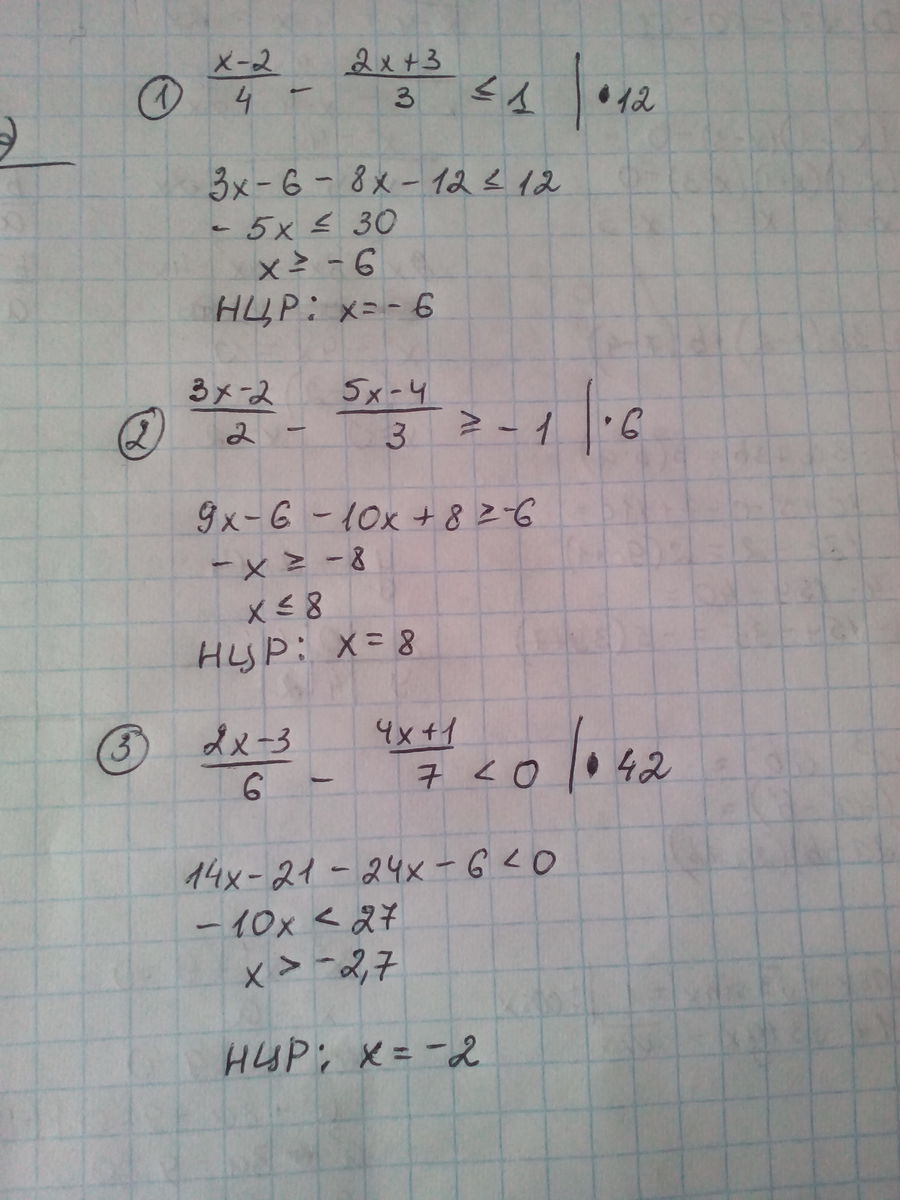 ① (x-2)/4 - (2x+3)/3 ≤ 1 | • 12
3x-6-8x-12 ≤ 12
-5x ≤ 30
x ≥ -6
НЦР: x=-6
② (3x-2)/2 - (5x-4)/3 ≥ -1 | · 6
9x-6-10x+8 ≥ -6
-x ≥ -8
x ≤ 8
НЦР: x=8
③ (2x-3)/6 - (4x+1)/7 < 0 | • 42
14x-21-24x-6 < 0
-10x < 27
x > -2,7
НЦР: x=-2